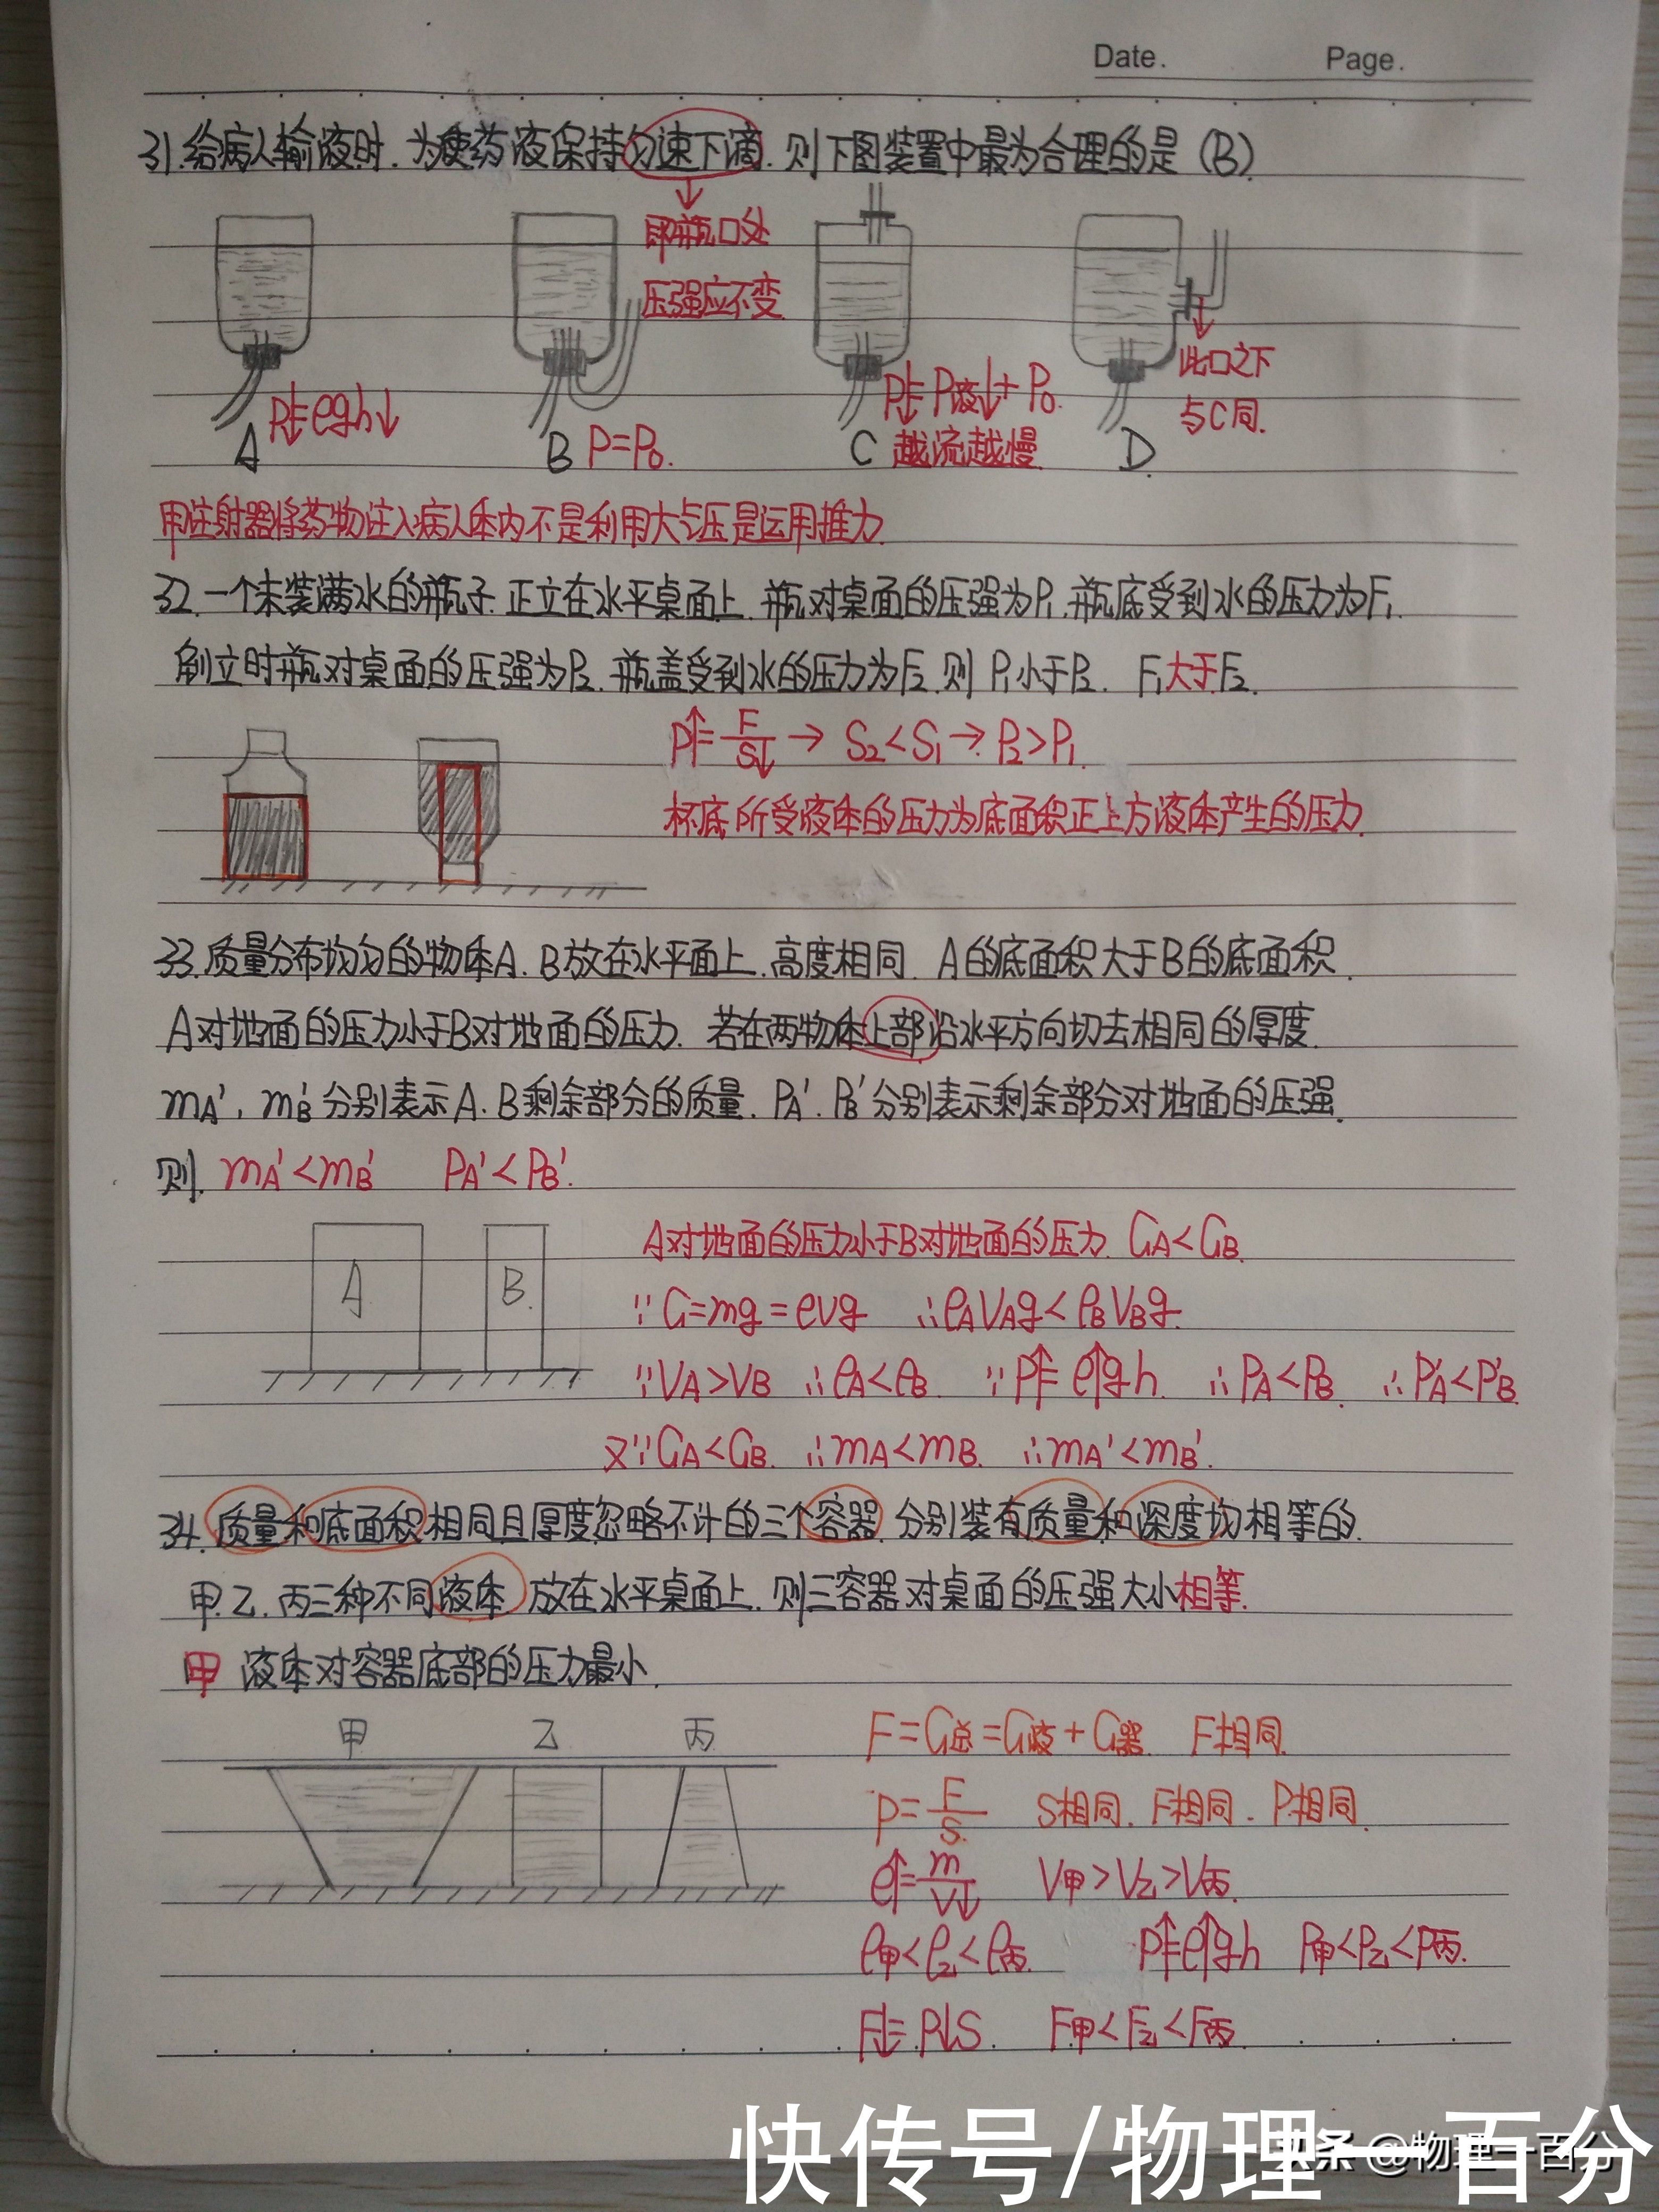 Date.  Page.
31.给病人输液时.为使药液保持匀速下滴.则下图装置中最为合理的是(B).
即瓶口处
压强应不变
此口之下
与C同.
A P↓=ρgh↓
B P=P₀.
C P↓=P液↓+P₀.
越流越慢
D
用注射器将药物注入病人体内不是利用大气压是运用推力.
32.一个未装满水的瓶子.正立在水平桌面上.瓶对桌面的压强为P₁.瓶底受到水的压力为F₁.
倒立时瓶对桌面的压强为P₂.瓶盖受到水的压力为F₂.则P₁小于P₂. F₁大于F₂.
P↑=F/S↓ → S₂<S₁ → P₂>P₁.
杯底所受液体的压力为底面积正上方液体产生的压力.
33.质量分布均匀的物体A.B放在水平面上.高度相同.A的底面积大于B的底面积.
A对地面的压力小于B对地面的压力.若在两物体上部沿水平方向切去相同的厚度.
mA'.mB'分别表示A.B剩余部分的质量.PA'.PB'分别表示剩余部分对地面的压强.
则 mA'<mB' PA'<PB'.
A B.
A对地面的压力小于B对地面的压力.GA<GB.
∵G=mg=ρvg ∴ρAVAg<ρBVBg.
∵VA>VB ∴ρA<ρB. ∵P↑=ρ↑gh. ∴PA<PB. ∴PA'<PB'.
又∵GA<GB. ∴mA<mB. ∴mA'<mB'.
34.质量和底面积相同且厚度忽略不计的三个容器.分别装有质量和深度均相等的.
甲.乙.丙三种不同液体.放在水平桌面上.则三容器对桌面的压强大小相等.
甲 液体对容器底部的压力最小.
甲 乙 丙
F=G总=G液+G器 F相同.
P=F/S. S相同.F相同.P相同.
ρ↑=m/V↓ V甲>V乙>V丙.
ρ甲<ρ乙<ρ丙. P↑=ρ↑gh P甲<P乙<P丙.
F↓=P↓S. F甲<F乙<F丙.
快传号/物理一百分
头条 @物理一百分